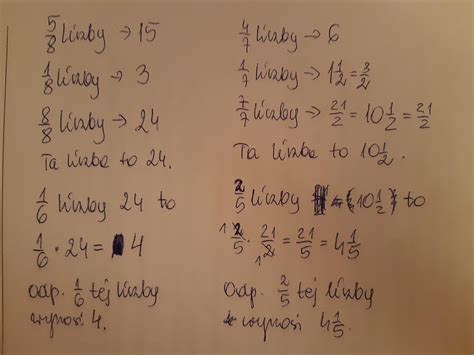 5/8 liczby → 15
1/8 liczby → 3
8/8 liczby → 24
Ta liczba to 24.
1/6 liczby 24 to
1/6 · 24 = 4
odp. 1/6 tej liczby
wynosi 4.
4/7 liczby → 6
1/7 liczby → 1 1/2 = 3/2
7/7 liczby → 21/2 = 10 1/2 = 21/2
Ta liczba to 10 1/2.
2/5 liczby (10 1/2) to
2/5 · 21/2 = 21/5 = 4 1/5
Odp. 2/5 tej liczby
wynosi 4 1/5.